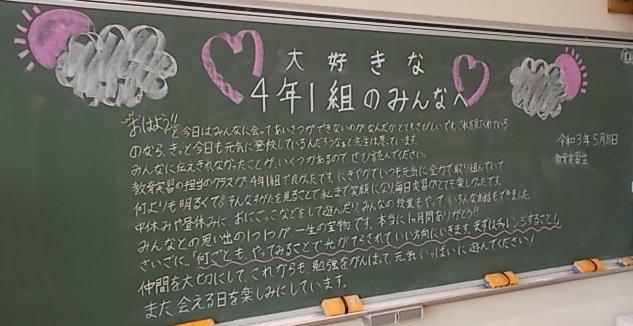 大好きな
4年1組のみんなへ
おはよう!!今日はみんなに会ってあいさつができないのがなんだかとてもさびしいです。これを見てくれている
のなら、きっと今日も元気に登校しているんだろうなぁと先生は思っています。
みんなに伝えきれなかったことが、いくつかあるので ぜひ読んでください。
教育実習の担当のクラスが4年1組で良かったです。にぎやかでいつも元気に全力で取り組んでいて
何よりも明るくて。そんなすがたを見ることで私まで笑顔になり毎日実習がとても楽しかったです。
中休みや昼休みに、おにごっこなどをして遊んだり、みんなの授業もやって、いろんなお話もできました。
みんなとの思い出の1つ1つが、一生の宝物です。本当に1ヵ月間ありがとう!!
さいごに、「何ごとも、やってみることで光がてらされていい方向にいきます。まずはチャレンジすること!」
仲間を大切にして、これからも勉強をがんばって、元気いっぱいに遊んでください!
また会える日を楽しみにしています。
令和3年5月
教育実習生